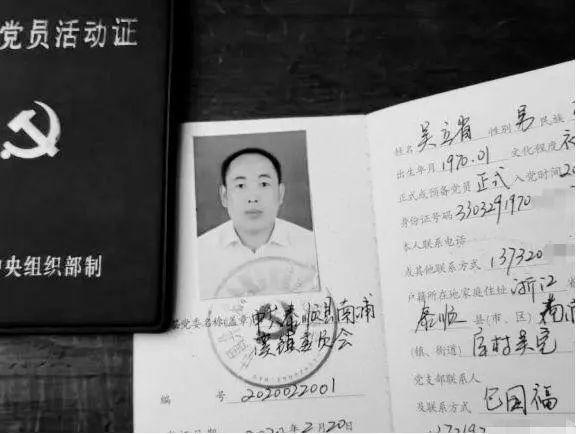 党员活动证
中央组织部制
基层党委名称(盖章)中共泰顺县南浦
溪镇委员会
编 号 2020022001
2020年2月20
姓名 吴立省 性别 男 民族
出生年月 1970.01 文化程度
正式或预备党员 正式 入党时间 20
身份证号码 3303291970
本人联系电话
或其他联系方式 137320
户籍所在地家庭住址 浙江 省
泰顺 县(市、区) 南浦
(镇、街道) 库村吴宅
党支部联系人
及联系方式 包国福
137197